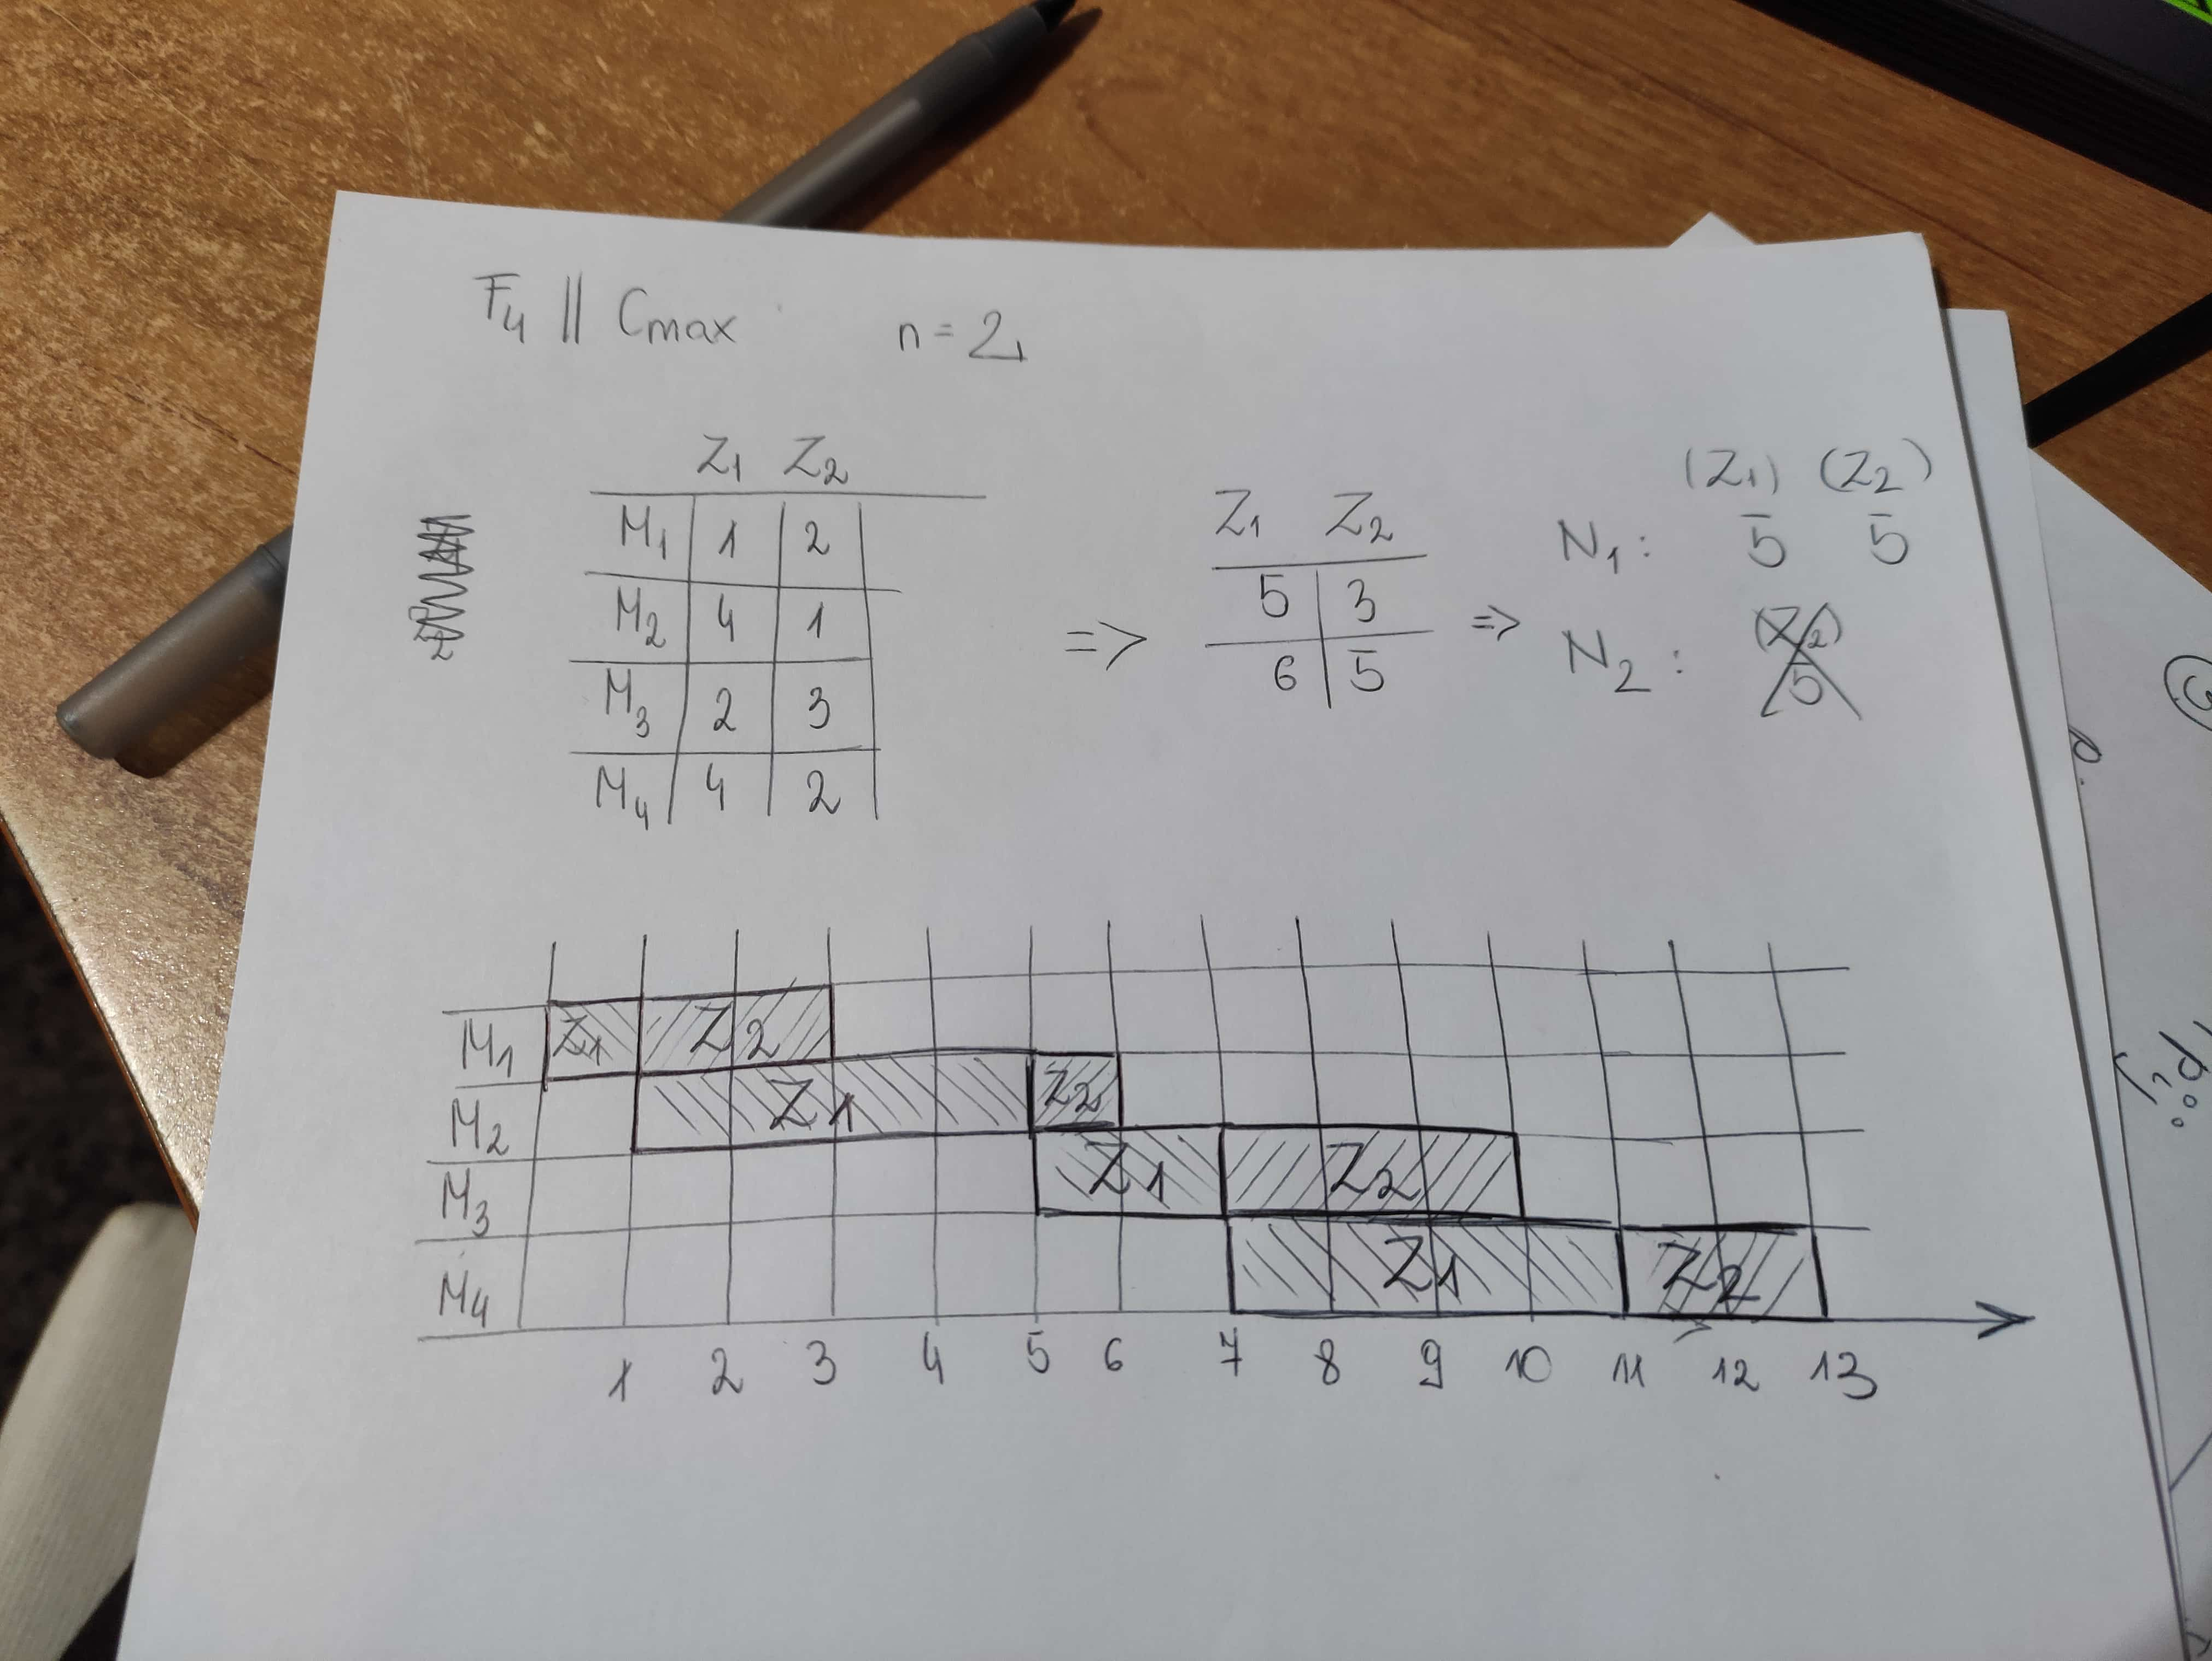 F4 || Cmax n = 2
Z1 Z2
M1 1 2
M2 4 1
M3 2 3
M4 4 2
=>
Z1 Z2
5 3
6 5
=>
(Z1) (Z2)
N1: 5 5
N2: (Z2)
5
M1 Z1 Z2
M2 Z1 Z2
M3 Z1 Z2
M4 Z1 Z2
1 2 3 4 5 6 7 8 9 10 11 12 13